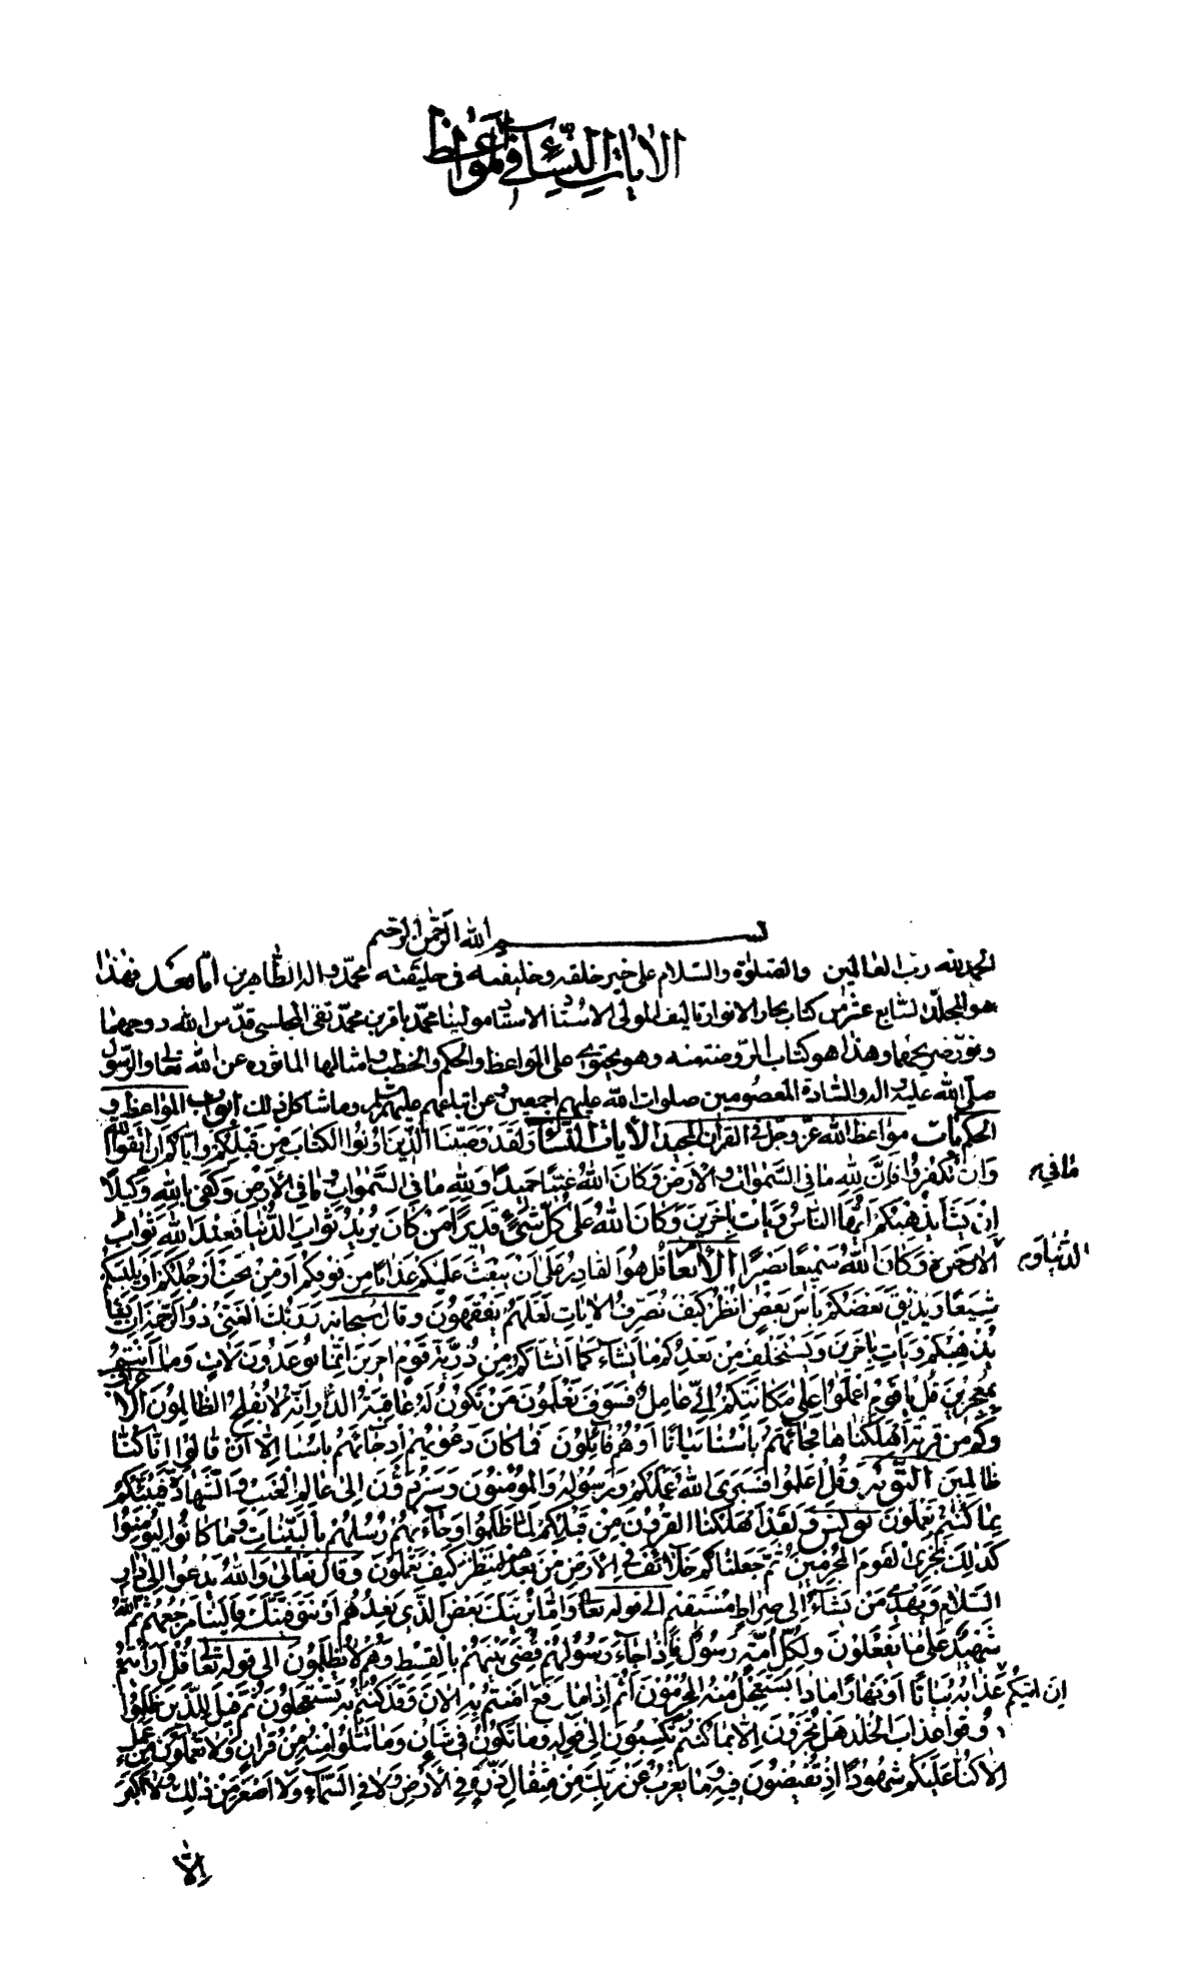 الايات النساء في المواعظ
بسم الله الرحمن الرحيم
الحمد لله رب العالمين والصلوة والسلام على خير خلقه وخليفته في خليقته محمد واله الطاهرين اما بعد فهذا
هو المجلد السابع عشر من كتاب بحار الانوار تاليف المولى الاستاد الاستاد مولينا محمد باقر بن محمد تقى المجلسي قدس الله روحهما
ونور ضريحهما وهذا هو كتاب الروضة منه وهو يحتوى على المواعظ والحكم والخطب وامثالها الماثوره عن الله تعالى والرسول
صلى الله عليه واله والسادة المعصومين صلوات الله عليهم اجمعين وعن اتباعهم وما شاكل ذلك ابواب المواعظ و
الحكم باب مواعظ الله عز وجل في القران المجيد الايات النساء ولقد وصينا الذين اوتوا الكتاب من قبلكم واياكم ان اتقوا الله
وان تكفروا فان لله ما في السموات والارض وكان الله غنيا حميدا ولله ما في السموات وما في الارض وكفى بالله وكيلا
مافي
ان يشا يذهبكم ايها الناس ويات باخرين وكان الله على كل شئ قديرا من كان يريد ثواب الدنيا فعند الله ثواب
الدنيا و
الاخرة وكان الله سميعا بصيرا الانعام قل هو القادر على ان يبعث عليكم عذابا من فوقكم او من تحت ارجلكم او يلبسكم
شيعا ويذيق بعضكم باس بعض انظر كيف نصرف الايات لعلهم يفقهون وقال سبحانه وربك الغنى ذو الرحمة ان يشا
يذهبكم ويات باخرين ويستخلف من بعدكم ما يشاء كما انشاكم من ذرية قوم اخرين انما توعدون لات وما انتم
بمعجزين قل يا قوم اعملوا على مكانتكم اني عامل فسوف تعلمون من تكون له عاقبة الدار انه لا يفلح الظالمون الاعراف
وكم من قرية اهلكناها فجائها باسنا بياتا او هم قائلون فما كان دعويهم اذ جائهم باسنا الا ان قالوا انا كنا
ظالمين التوبة وقل اعملوا فسيرى الله عملكم ورسوله والمؤمنون وستردون الى عالم الغيب والشهادة فينبئكم
بما كنتم تعملون يونس ولقد اهلكنا القرون من قبلكم لما ظلموا وجاءتهم رسلهم بالبينات وما كانوا ليؤمنوا
كذلك نجزى القوم المجرمين ثم جعلناكم خلائف في الارض من بعدهم لننظر كيف تعملون وقال تعالى والله يدعوا الى دار
السلام ويهدى من يشاء الى صراط مستقيم الى قوله تعالى واما نرينك بعض الذى نعدهم او نتوفينك فالينا مرجعهم ثم الله
شهيد على ما يفعلون ولكل امة رسول فاذا جاء رسولهم قضى بينهم بالقسط وهم لا يظلمون الى قوله تعالى قل ارايتم
ان اتيكم عذابه بياتا او نهارا ماذا يستعجل منه المجرمون اثم اذا ما وقع امنتم به الان وقد كنتم به تستعجلون ثم قيل للذين ظلموا
ذوقوا عذاب الخلد هل تجزون الا بما كنتم تكسبون الى قوله وما تكون في شان وما تتلوا منه من قران ولا تعملون من عمل
الا كنا عليكم شهودا اذ تفيضون فيه وما يعزب عن ربك من مثقال ذرة في الارض ولا في السماء ولا اصغر من ذلك ولا اكبر
الا